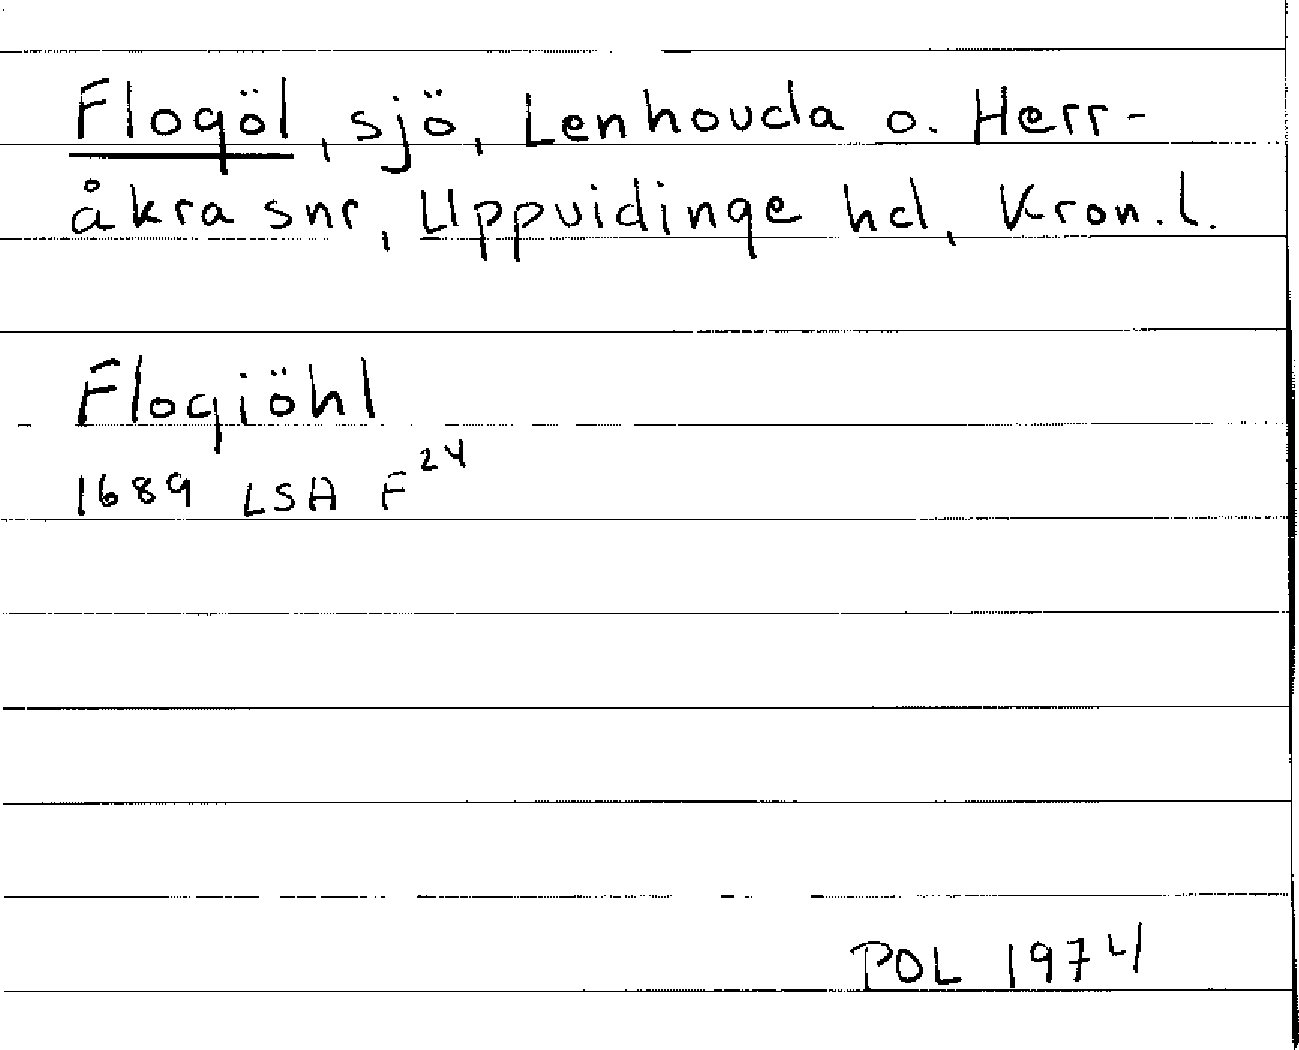 Flogöl, sjö, Lenhovda o. Herr-
åkra snr, Uppvidinge hd, Kron. l.
Flogiöhl
1689 LSA F²⁴
POL 1974